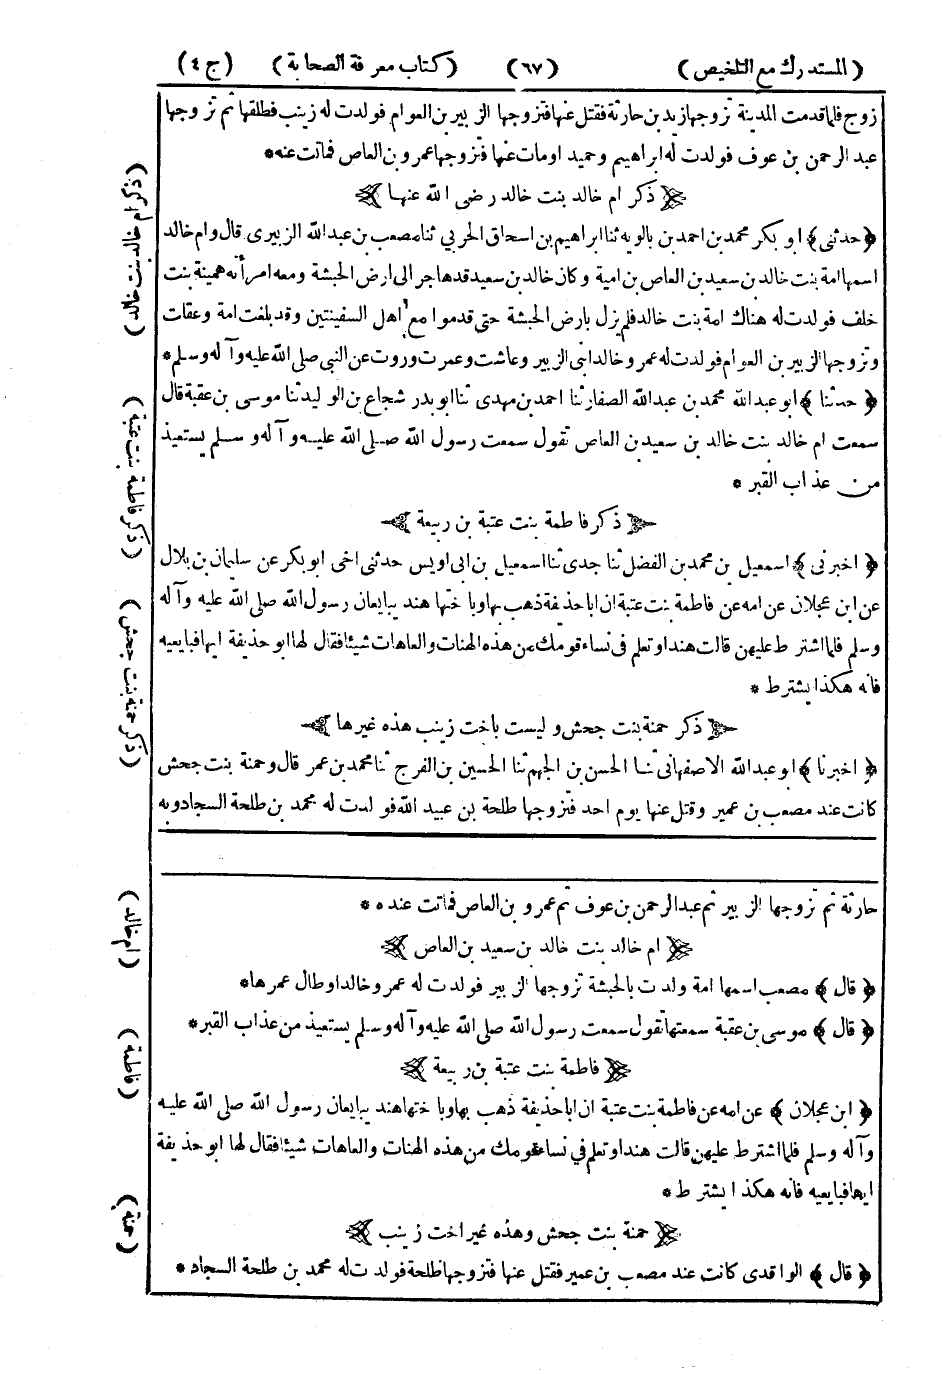 (المستدرك مع التلخيص) (٦٧) (كتاب معرفة الصحابة) (ج ٤)
زوج فلما قدمت المدينة تزوجها زيد بن حارثة فقتل عنها فتزوجها الزبير بن العوام فولدت له زينب فطلقها ثم تزوجها
عبد الرحمن بن عوف فولدت له ابراهيم وحميد اومات عنها فتزوجها عمرو بن العاص فماتت عنه *
ذكر ام خالد بنت خالد رضى الله عنها
﴿حدثنى﴾ ابو بكر محمد بن احمد بن بالويه ثنا ابراهيم بن اسحاق الحربي ثنا مصعب بن عبد الله الزبيرى قال وام خالد
اسمها امة بنت خالد بن سعيد بن العاص بن امية وكان خالد بن سعيد قد هاجر الى ارض الحبشة ومعه امرأته همينة بنت
خلف فولدت له هناك امة بنت خالد فلم يزل بارض الحبشة حتى قدموا مع اهل السفينتين وقد بلغت امة وعقلت
وتزوجها الزبير بن العوام فولدت له عمر وخالد ابنى الزبير وعاشت وعمرت وروت عن النبي صلى الله عليه وآله وسلم *
﴿حدثنا﴾ ابو عبد الله محمد بن عبد الله الصفار ثنا احمد بن مهدى ثنا ابو بدر شجاع بن الوليد ثنا موسى بن عقبة قال
سمعت ام خالد بنت خالد بن سعيد بن العاص تقول سمعت رسول الله صلى الله عليه وآله وسلم يستعيذ
من عذاب القبر *
ذكر فاطمة بنت عتبة بن ربيعة
﴿اخبرنى﴾ اسمعيل بن محمد بن الفضل ثنا جدى ثنا اسمعيل بن ابى اويس حدثنى اخى ابو بكر عن سليمان بن بلال
عن ابن عجلان عن امه عن فاطمة بنت عتبة ان ابا حذيفة ذهب بها وباختها هند يبايعان رسول الله صلى الله عليه وآله
وسلم فلما اشترط عليهن قالت هند اوتعلم فى نساء قومك من هذه الهنات والعاهات شيئا فقال لها ابو حذيفة ايها فبايعيه
فانه هكذا يشترط *
ذكر حمنة بنت جحش وليست باخت زينب هذه غيرها
﴿اخبرنا﴾ ابو عبد الله الاصفهانى ثنا الحسن بن الجهم ثنا الحسين بن الفرج ثنا محمد بن عمر قال وحمنة بنت جحش
كانت عند مصعب بن عمير وقتل عنها يوم احد فتزوجها طلحة بن عبيد الله فولدت له محمد بن طلحة السجاد وبه
حارثة ثم تزوجها الزبير ثم عبد الرحمن بن عوف ثم عمرو بن العاص فماتت عنده *
ام خالد بنت خالد بن سعيد بن العاص
﴿قال﴾ مصعب اسمها امة ولدت بالحبشة تزوجها الزبير فولدت له عمر وخالد اوطال عمرها *
﴿قال﴾ موسى بن عقبة سمعتها تقول سمعت رسول الله صلى الله عليه وآله وسلم يستعيذ من عذاب القبر *
فاطمة بنت عتبة بن ربيعة
﴿ابن عجلان﴾ عن امه عن فاطمة بنت عتبة ان ابا حذيفة ذهب بها وباختها هند يبايعان رسول الله صلى الله عليه
وآله وسلم فلما اشترط عليهن قالت هند اوتعلم في نساء قومك من هذه الهنات والعاهات شيئا فقال لها ابو حذيفة
ايها فبايعيه فانه هكذا يشترط *
حمنة بنت جحش وهذه غير اخت زينب
﴿قال﴾ الواقدى كانت عند مصعب بن عمير فقتل عنها فتزوجها طلحة فولدت له محمد بن طلحة السجاد *
(ذكر ام خالد بنت خالد)
(ذكر فاطمة بنت عتبة)
(ذكر حمنة بنت جحش)
(ام خالد)
(فاطمة)
(حمنة)